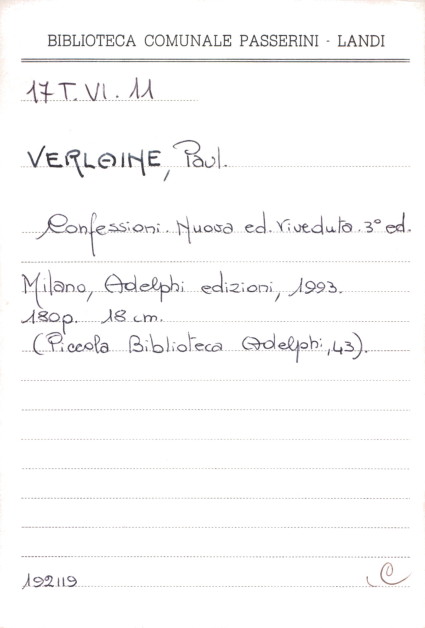 BIBLIOTECA COMUNALE PASSERINI - LANDI
17 T. VI. 11
VERLAINE, Paul.
Confessioni. Nuova ed. riveduta. 3° ed.
Milano, Adelphi edizioni, 1993.
180p. 18 cm.
(Piccola Biblioteca Adelphi, 43).
192119 C